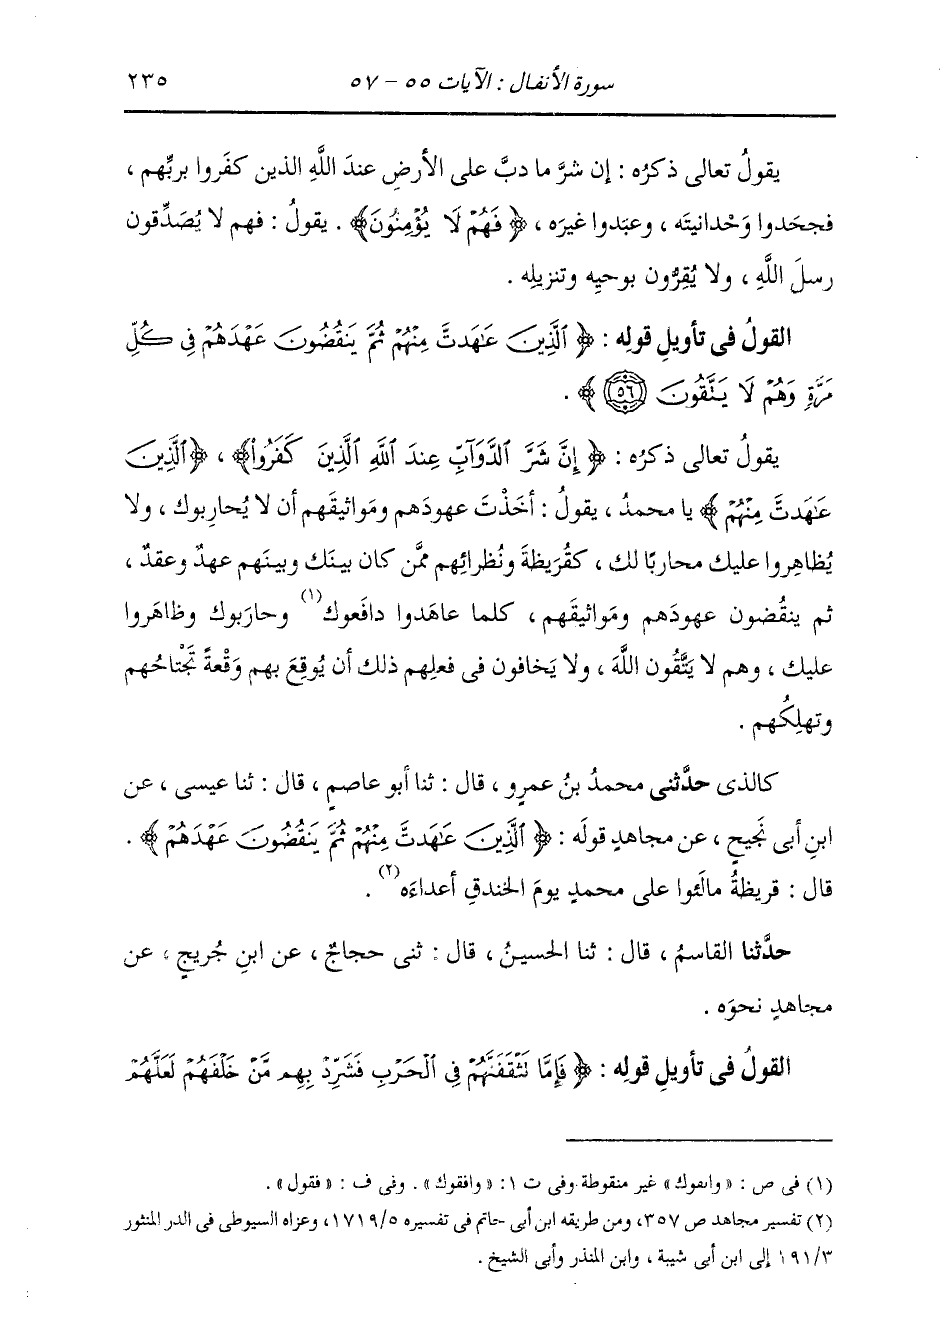 سورة الأنفال : الآيات ٥٥ - ٥٧ ٢٣٥
يقولُ تعالى ذكرُه : إن شرَّ ما دبَّ على الأرضِ عندَ اللَّهِ الذين كفَروا بربِّهم ،
فجحَدوا وَحْدانيتَه ، وعبَدوا غيرَه ، ﴿ فَهُمْ لَا يُؤْمِنُونَ﴾ . يقولُ : فهم لا يُصَدِّقون
رسلَ اللَّهِ ، ولا يُقِرُّون بوحيِه وتنزيلِه .
القولُ فى تأويلِ قولِه : ﴿ ٱلَّذِينَ عَـٰهَدتَّ مِنْهُمْ ثُمَّ يَنقُضُونَ عَهْدَهُمْ فِى كُلِّ
مَرَّةٍ وَهُمْ لَا يَتَّقُونَ ٥٦ ﴾ .
يقولُ تعالى ذكرُه : ﴿ إِنَّ شَرَّ ٱلدَّوَآبِّ عِندَ ٱللَّهِ ٱلَّذِينَ كَفَرُوا۟﴾ ، ﴿ٱلَّذِينَ
عَـٰهَدتَّ مِنْهُمْ ﴾ يا محمدُ ، يقولُ : أخَذْتَ عهودَهم ومَواثيقَهم أن لا يُحارِبوك ، ولا
يُظاهِروا عليك محاربًا لك ، كقُرَيظةَ ونُظرائِهم ممَّن كان بينَك وبينَهم عهدٌ وعقدٌ ،
ثم ينقُضون عهودَهم ومَواثيقَهم ، كلما عاهَدوا دافَعوك(١) وحارَبوك وظاهَروا
عليك ، وهم لا يَتَّقُون اللَّهَ ، ولا يَخافون فى فعلِهم ذلك أن يُوقِعَ بهم وَقْعةً تَجْتاحُهم
وتهلِكُهم .
كالذى حدَّثنى محمدُ بنُ عمرٍو ، قال : ثنا أبو عاصمٍ ، قال : ثنا عيسى ، عن
ابنِ أبى نَجيحٍ ، عن مجاهدٍ قولَه : ﴿ ٱلَّذِينَ عَـٰهَدتَّ مِنْهُمْ ثُمَّ يَنقُضُونَ عَهْدَهُمْ ﴾ .
قال : قريظةُ مالَئوا على محمدٍ يومَ الخندقِ أعداءَه(٢) .
حدَّثنا القاسمُ ، قال : ثنا الحسينُ ، قال : ثنى حجاجٌ ، عن ابنِ جُريجٍ ، عن
مجاهدٍ نحوَه .
القولُ فى تأويلِ قولِه : ﴿ فَإِمَّا تَثْقَفَنَّهُمْ فِى ٱلْحَرْبِ فَشَرِّدْ بِهِم مَّنْ خَلْفَهُمْ لَعَلَّهُمْ
(١) فى ص : « وانفوك» غير منقوطة وفى ت ١: « وافقوك» . وفى ف : « فقول» .
(٢) تفسير مجاهد ص ٣٥٧، ومن طريقه ابن أبى حاتم فى تفسيره ١٧١٩/٥، وعزاه السيوطى فى الدر المنثور
١٩١/٣ إلى ابن أبى شيبة ، وابن المنذر وأبى الشيخ .